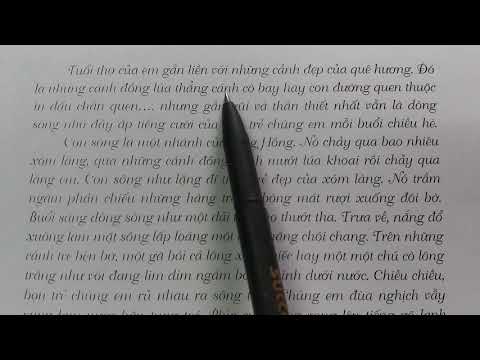 Tuổi thơ của em gắn liền với những cảnh đẹp của quê hương. Đó
là những cánh đồng lúa thẳng cánh cò bay hay con đường quen thuộc
in dấu chân quen.... nhưng gần gũi và thân thiết nhất vẫn là dòng
sông nhỏ đầy ắp tiếng cười của trẻ chúng em mỗi buổi chiều hè.
Con sông là một nhánh của Hồng. Nó chảy qua bao nhiêu
xóm làng, qua những cánh đồng mướt lúa khoai rồi chảy qua
làng em. Con sông như lặng đi vẻ đẹp của xóm làng. Nó trầm
ngâm phản chiếu những hàng tre mát rượi xuống đôi bờ.
Buổi sáng dòng sông như một dải thướt tha. Trưa về, nắng đổ
xuống làm mặt sông lấp loáng một chói chang. Trên những
cành tre bên bờ, một gã bói cá lông hay một một chú cò lông
trắng như vôi đang lim dim ngắm mình dưới nước. Chiều chiều,
bọn trẻ chúng em rủ nhau ra Chúng em đùa nghịch vẫy